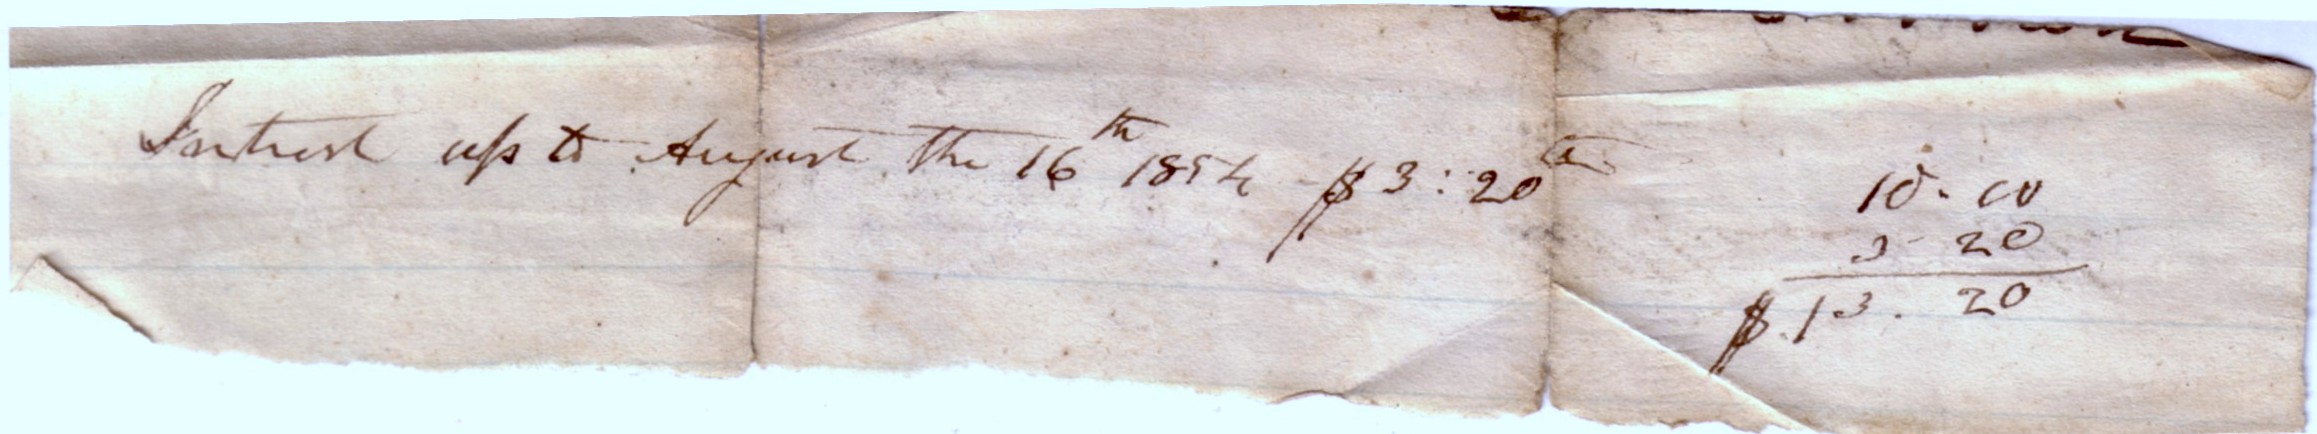 Intrest up to August the 16th 1854 $3:20cts
10.00
3 20
$.13.20